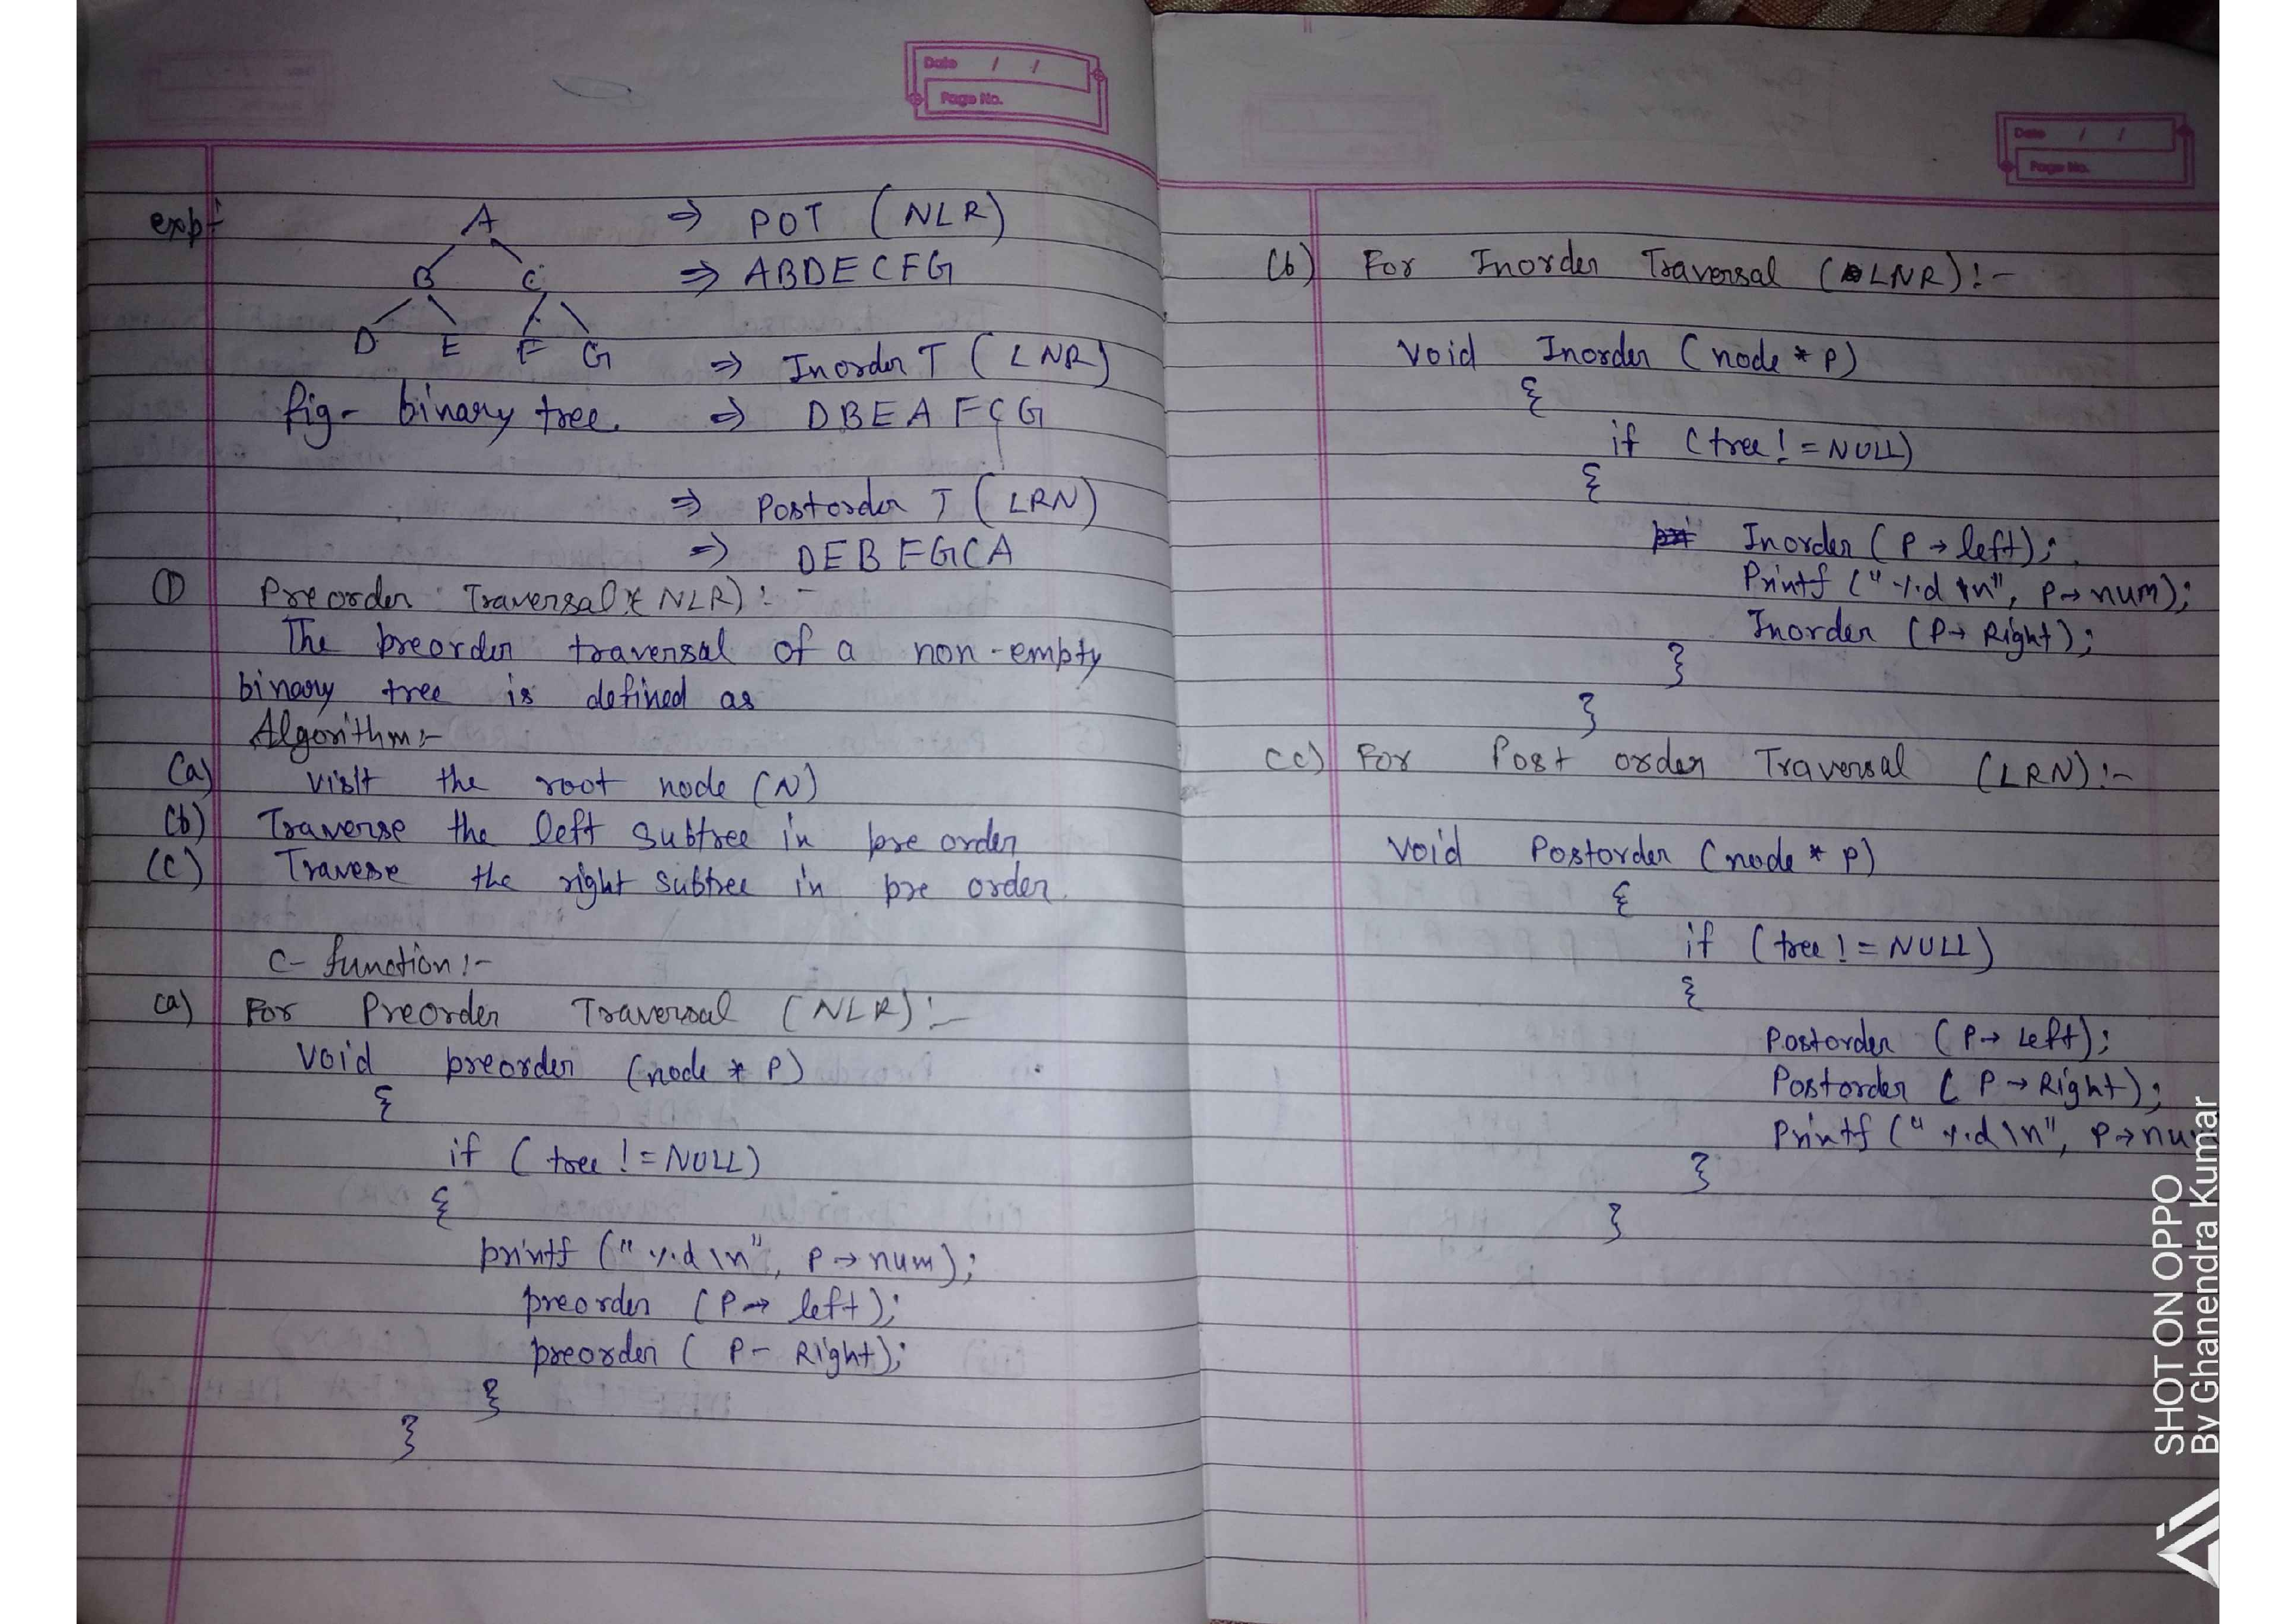 Date / /
Page No.
exp:-
A
B C
D E F G
fig- binary tree.
⇒ POT (NLR)
⇒ ABDECFG
⇒ Inorder T (LNR)
⇒ DBEAFCG
⇒ Postorder T (LRN)
⇒ DEBFGCA
① Preorder Traversal (NLR):-
The preorder traversal of a non-empty
binary tree is defined as
Algorithm:-
(a) visit the root node (N)
(b) Traverse the left subtree in pre order
(c) Travese the right subtree in pre order.
C- function:-
(a) For Preorder Traversal (NLR):-
Void preorder (node * P)
{
if (tree != NULL)
{
printf ("%d \n", P→num);
preorder (P→ left);
preorder ( P- Right);
}
}
Date / /
Page No.
(b) For Inorder Traversal (LNR):-
Void Inorder (node * P)
{
if (tree != NULL)
{
Inorder (P → left);
Printf ("%d \n", P→num);
Inorder (P→ Right);
}
}
(c) For Post order Traversal (LRN):-
Void Postorder (node * P)
{
if (tree != NULL)
{
Postorder (P→ Left);
Postorder ( P → Right);
Printf ("%d \n", P→nu
}
}
SHOT ON OPPO
By Ghanendra Kumar